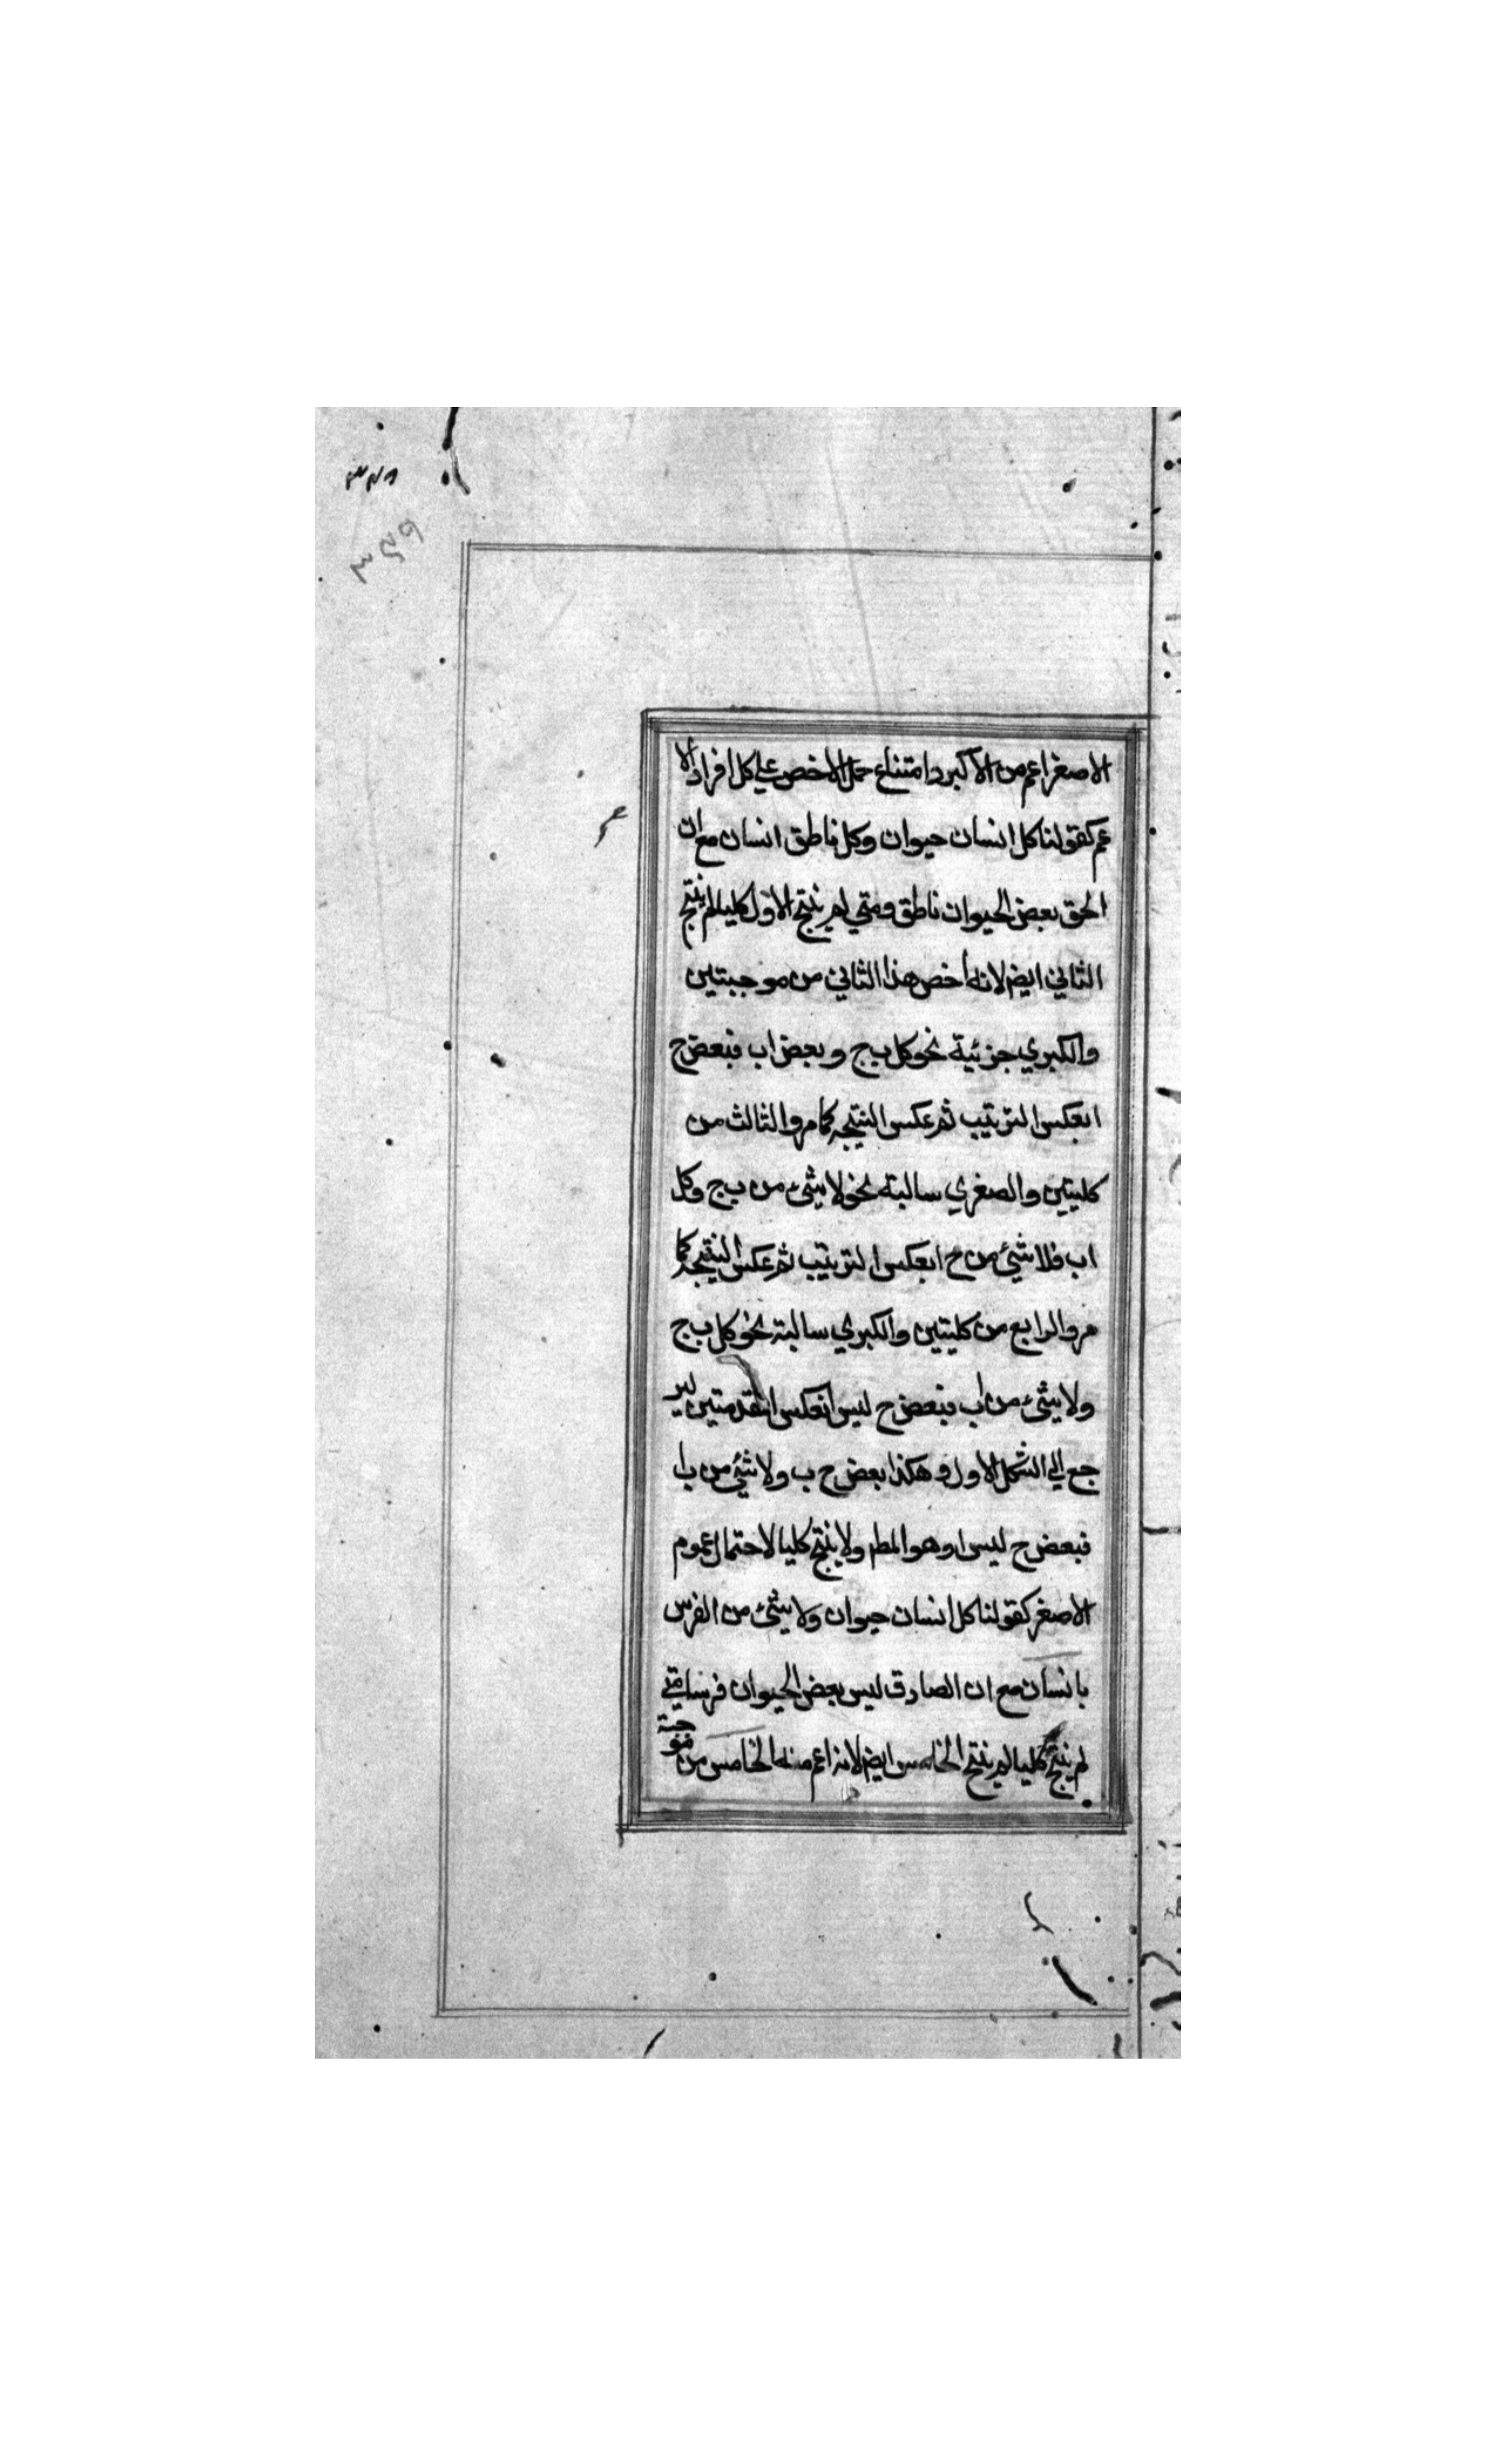 ٣٤٩
٣٤٩
الاصغر اعم من الاكبر وامتناع حمل الاخص علي كل افراد الا
عم كقولنا كل انسان حيوان وكل ناطق انسان مع ان
الحق بعض الحيوان ناطق ومتي لم ينتج الاول كليا لم ينتج
الثاني ايضم لانه اخص هذا الثاني من موجبتين
والكبري جزئية نحو كل ب ج وبعض ا ب فبعض ج
ا بعكس الترتيب ثم عكس النتيجه كما مر والثالث من
كليتين والصغري سالبته نحو لا شئ من ب ج وكل
ا ب فلا شئ من ج ا بعكس الترتيب ثم عكس النتيجه كما
مر والرابع من كليتين والكبري سالبته نحو كل ب ج
ولا شئ من ا ب فبعض ج ليس ا بعكس المقدمتين لير
جع الي الشكل الاول وهكذا بعض ج ب ولا شئ من ب ا
فبعض ج ليس ا وهو المطم ولا ينتج كليا لاحتمال عموم
الاصغر كقولنا كل انسان حيوان ولا شئ من الفرس
بانسان مع ان الصادق ليس بعض الحيوان فرسا متي
لم ينتج كليا لم ينتج الخامس ايضم لانه اعم منه الخامس من موجبة